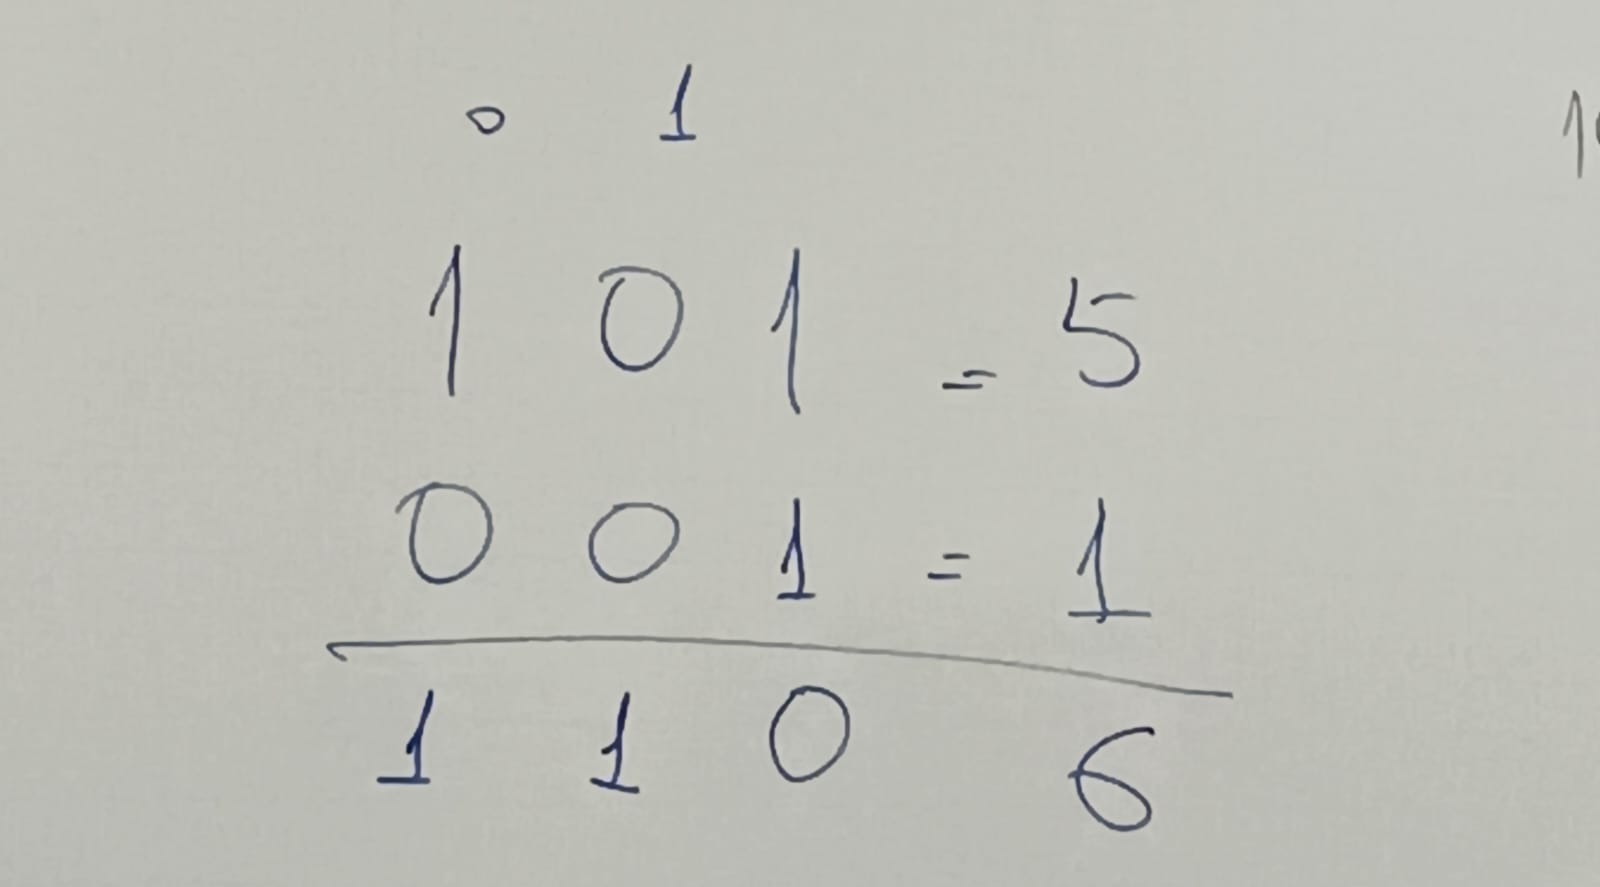 0 1
1 0 1 = 5
0 0 1 = 1
1 1 0 6